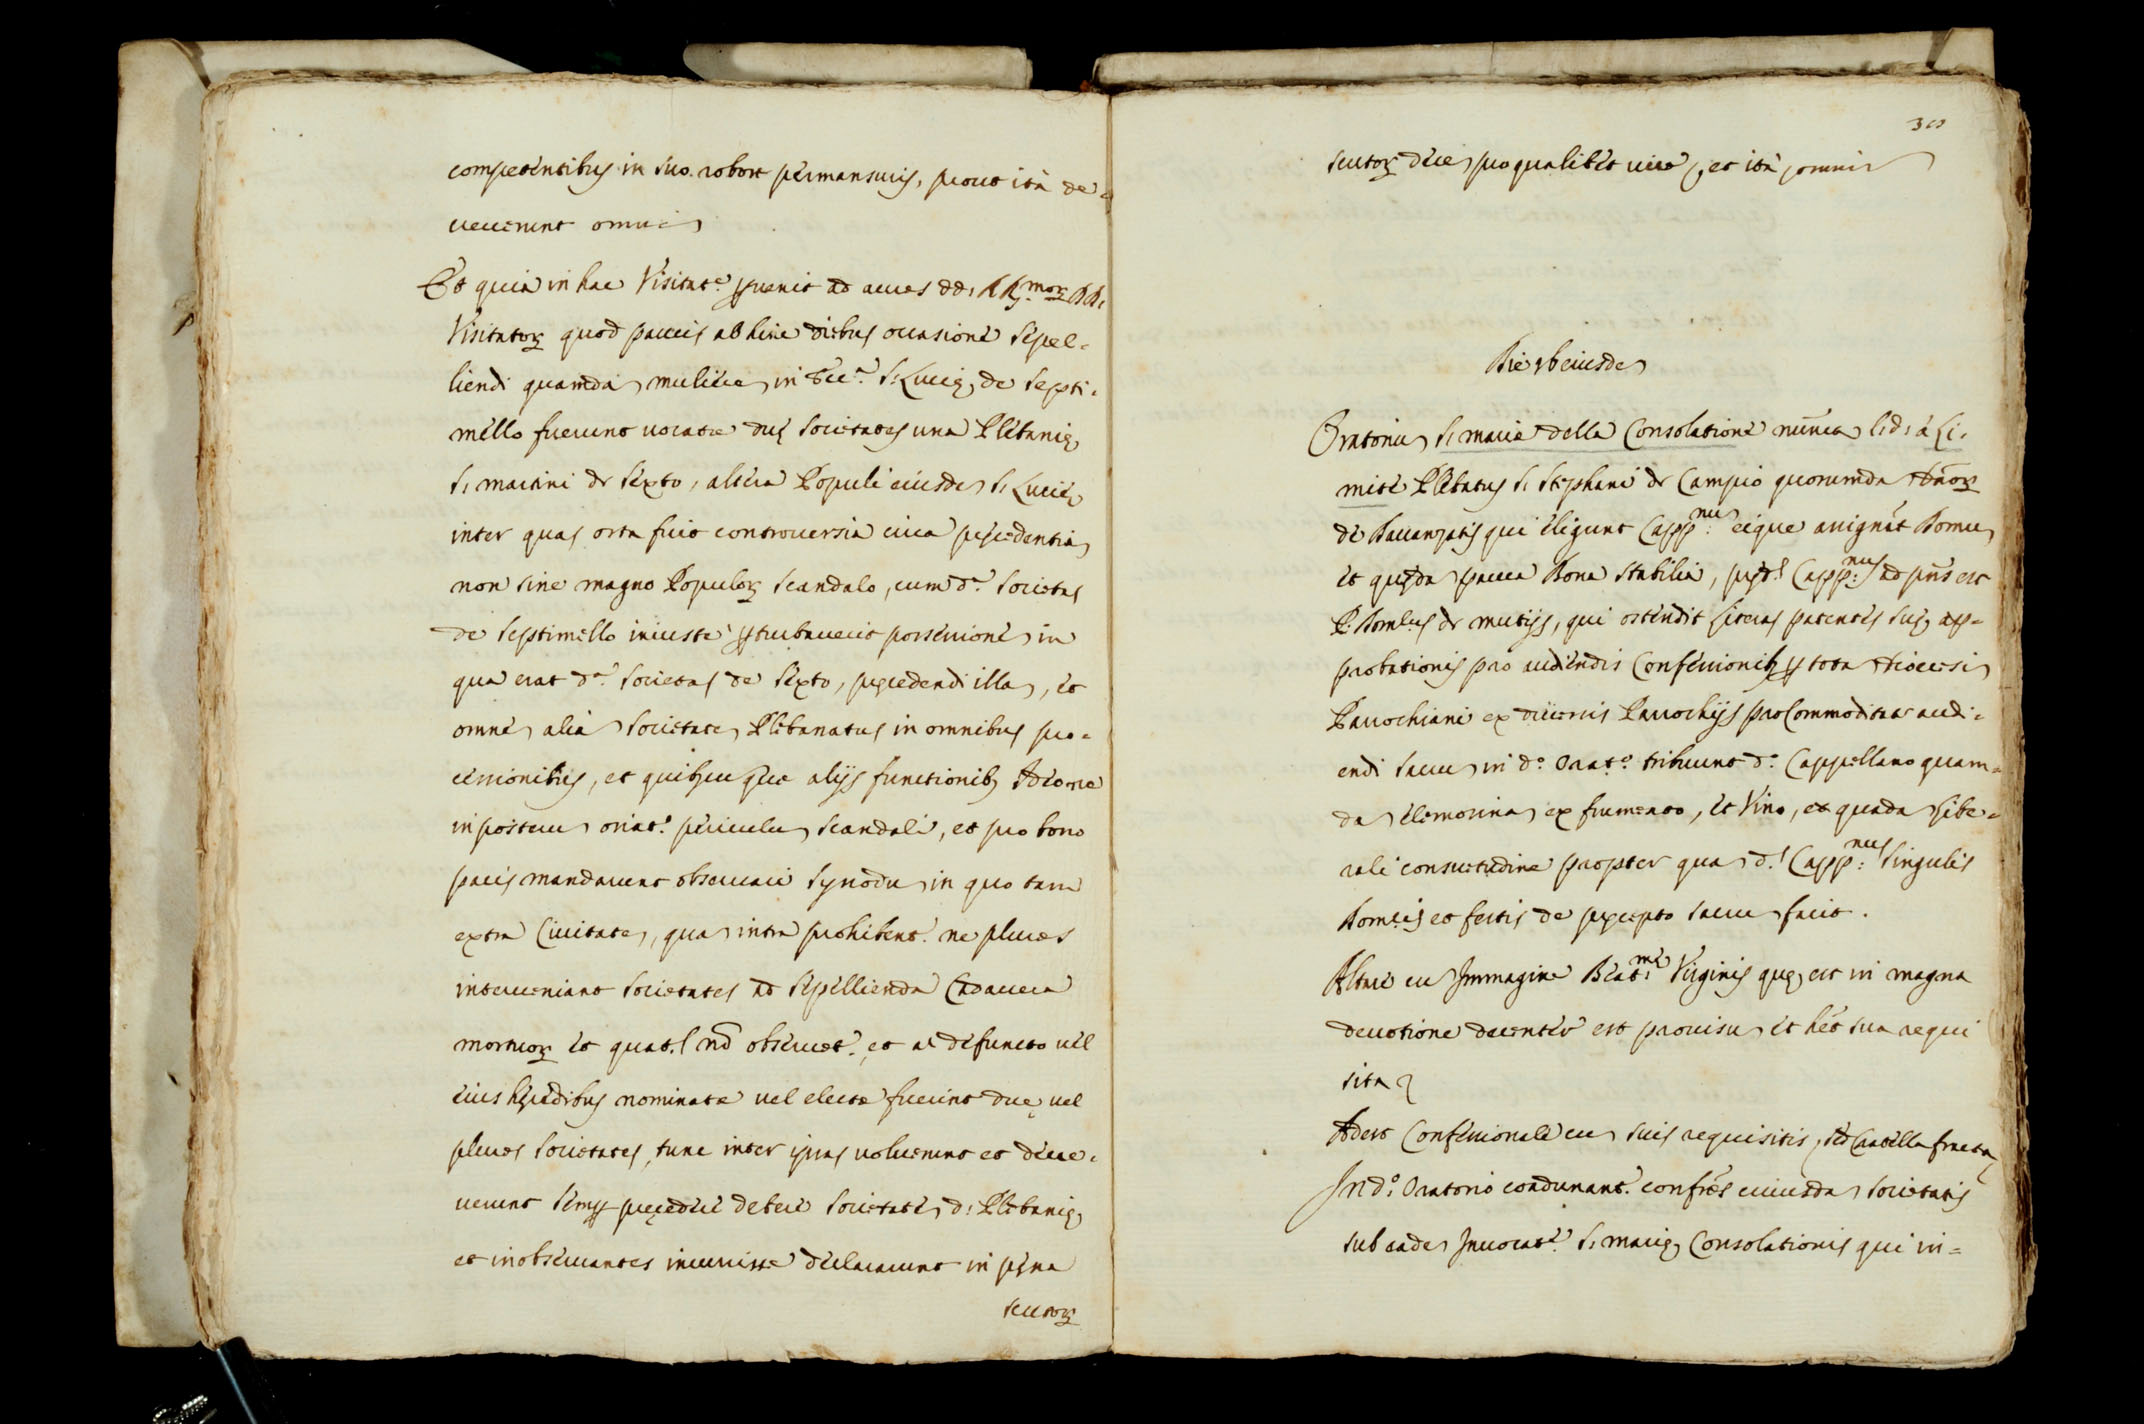 competentibus in suo robore permansuris, prout ita de=
uenerunt omni
Et quia in hac Visitat.e peruenit ad aures dd. RR.mor. DD.
Visitator. quod paucis ab hinc diebus occasione sepel=
liendi quamda mulierē in Ecc.a S. Lucię de Septi=
mello fuerunt uocatæ duę Societates una Plebanię
S. Martini de Sexto, altera Populi eiusde S. Lucię
inter quas orta fuit controuersia circa pręcedentia
non sine magno Populor. scandalo, cum d.a Societas
de Septimello iniuste perturbauerit possessione in
qua erat d.a Societas de Sexto, pręcedendi illa, et
omne alia Societate Plebanatus in omnibus pro=
cessionibus, et quibuscuque alijs functionib. Adeo ne
in posteru oriat. periculu scandali, et pro bono
pacis mandauerunt obseruari Synodu in quo tam
extra Ciuitate, qua intra prohibent. ne plures
interueniant Societates ad sepellienda Cadauera
mortuor. et quat.s nō obseruet. et a defuncto uel
eius hęredibus nominatæ uel electæ fuerint duę uel
plures Societates, tunc inter ipsas uoluerunt et decre=
uerunt semp pręcedere debere Societate d. Plebanię
et inobseruantes incurrisse declararunt in pęna
scutor.
300
scutor. dece pro qualibet uice, et ita omni
Die 9 eiusde
Oratoriu S. Mariæ della Consolatione nūncu l. d. a Li=
mite Plebatus S. Stephani de Campio quorumda Dnor.
de Bauanzatis qui eligunt Capp.nu eique assignāt Domu
et quęda pauca Bona Stabilia, pręd.s Capp.nus ad pñs est
P. Dom.cus de Mutijs, qui ostendit Literas patentes suę ap=
probationis pro audiendis Confessionib. p tota Diocesi
Parrochiani ex diuersis Parrochijs pro Commoditate audi=
endi Sacru in d.o Orat.o tribuunt d.o Cappellano quam=
da elemosina ex frumento, et Vino, ex quada libe=
rali consuetudine propter qua d.s Capp.nus singulis
Dom.cis et festis de pręcepto sacru facit.
Altare cu Immagine Beat.mę Virginis quę est in magna
deuotione decenter est prouisu et het sua requi
sita
Adest Confessionale cu suis requisitis, sed Cratella fracta
In d.o Oratorio coadunant. confres cuiusda Societatis
sub eade Inuocat.e S. Marię Consolationis qui in=